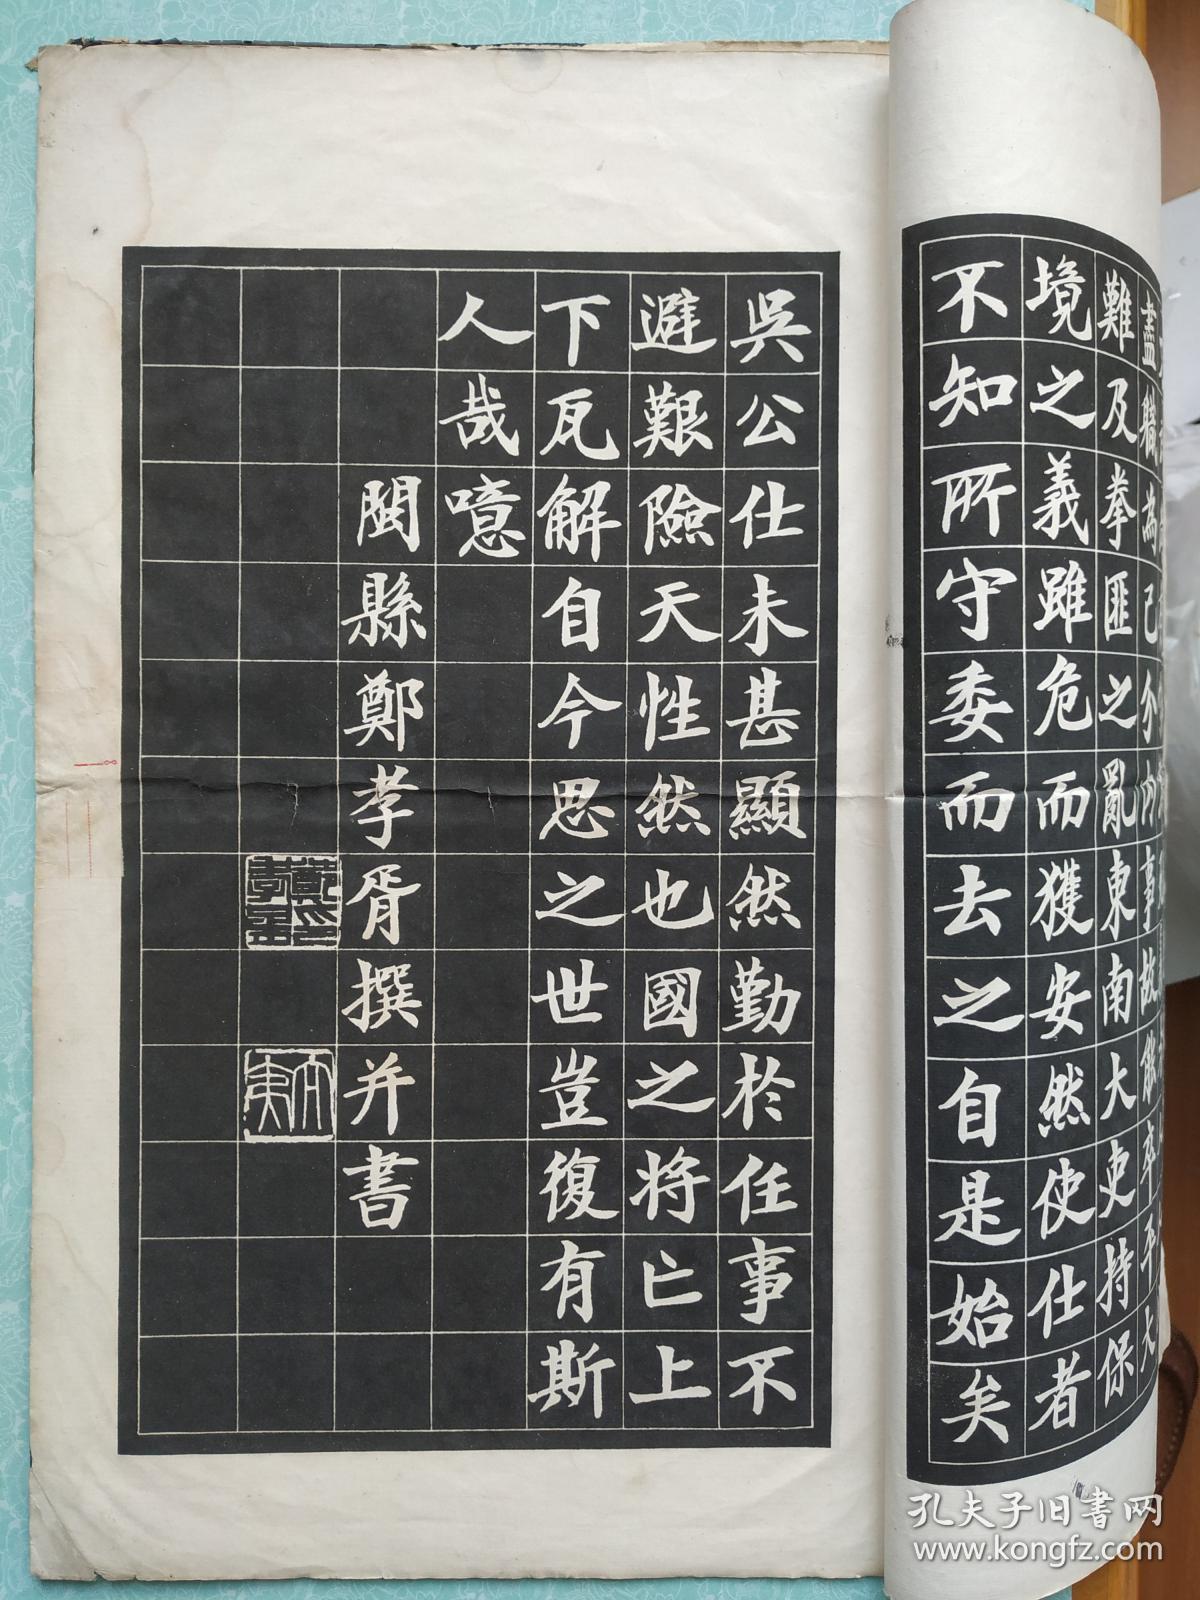 盡職為己分內事故能卒平大
難及拳匪之亂東南大吏持保
境之義雖危而獲安然使仕者
不知所守委而去之自是始矣
吳公仕未甚顯然勤於任事不
避艱險天性然也國之將亡上
下瓦解自今思之世豈復有斯
人哉噫
閩縣鄭孝胥撰并書
孔夫子旧书网
www.kongfz.com